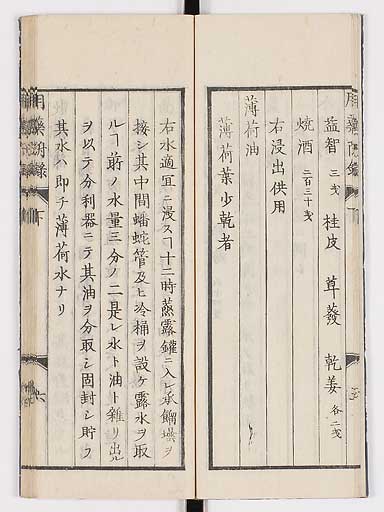 益智 三戔 桂皮 蓽蕟 乾姜 各二戔
焼酒 二百三十戔
右浸出供用
薄荷油
薄荷葉少乾者
右水適宜ニ浸スヿ十二時蒸露鑵ニ入レ承餾壜ヲ
接シ其中間蟠蛇管及ヒ冷桶ヲ設ケ露水ヲ取
ルヿ前ノ水量三分ノ二是レ水ト油ト雜リ出
ヲ以テ分利器ニテ其油ヲ分取シ固封シ貯フ
其水ハ即チ薄荷水ナリ
下
六